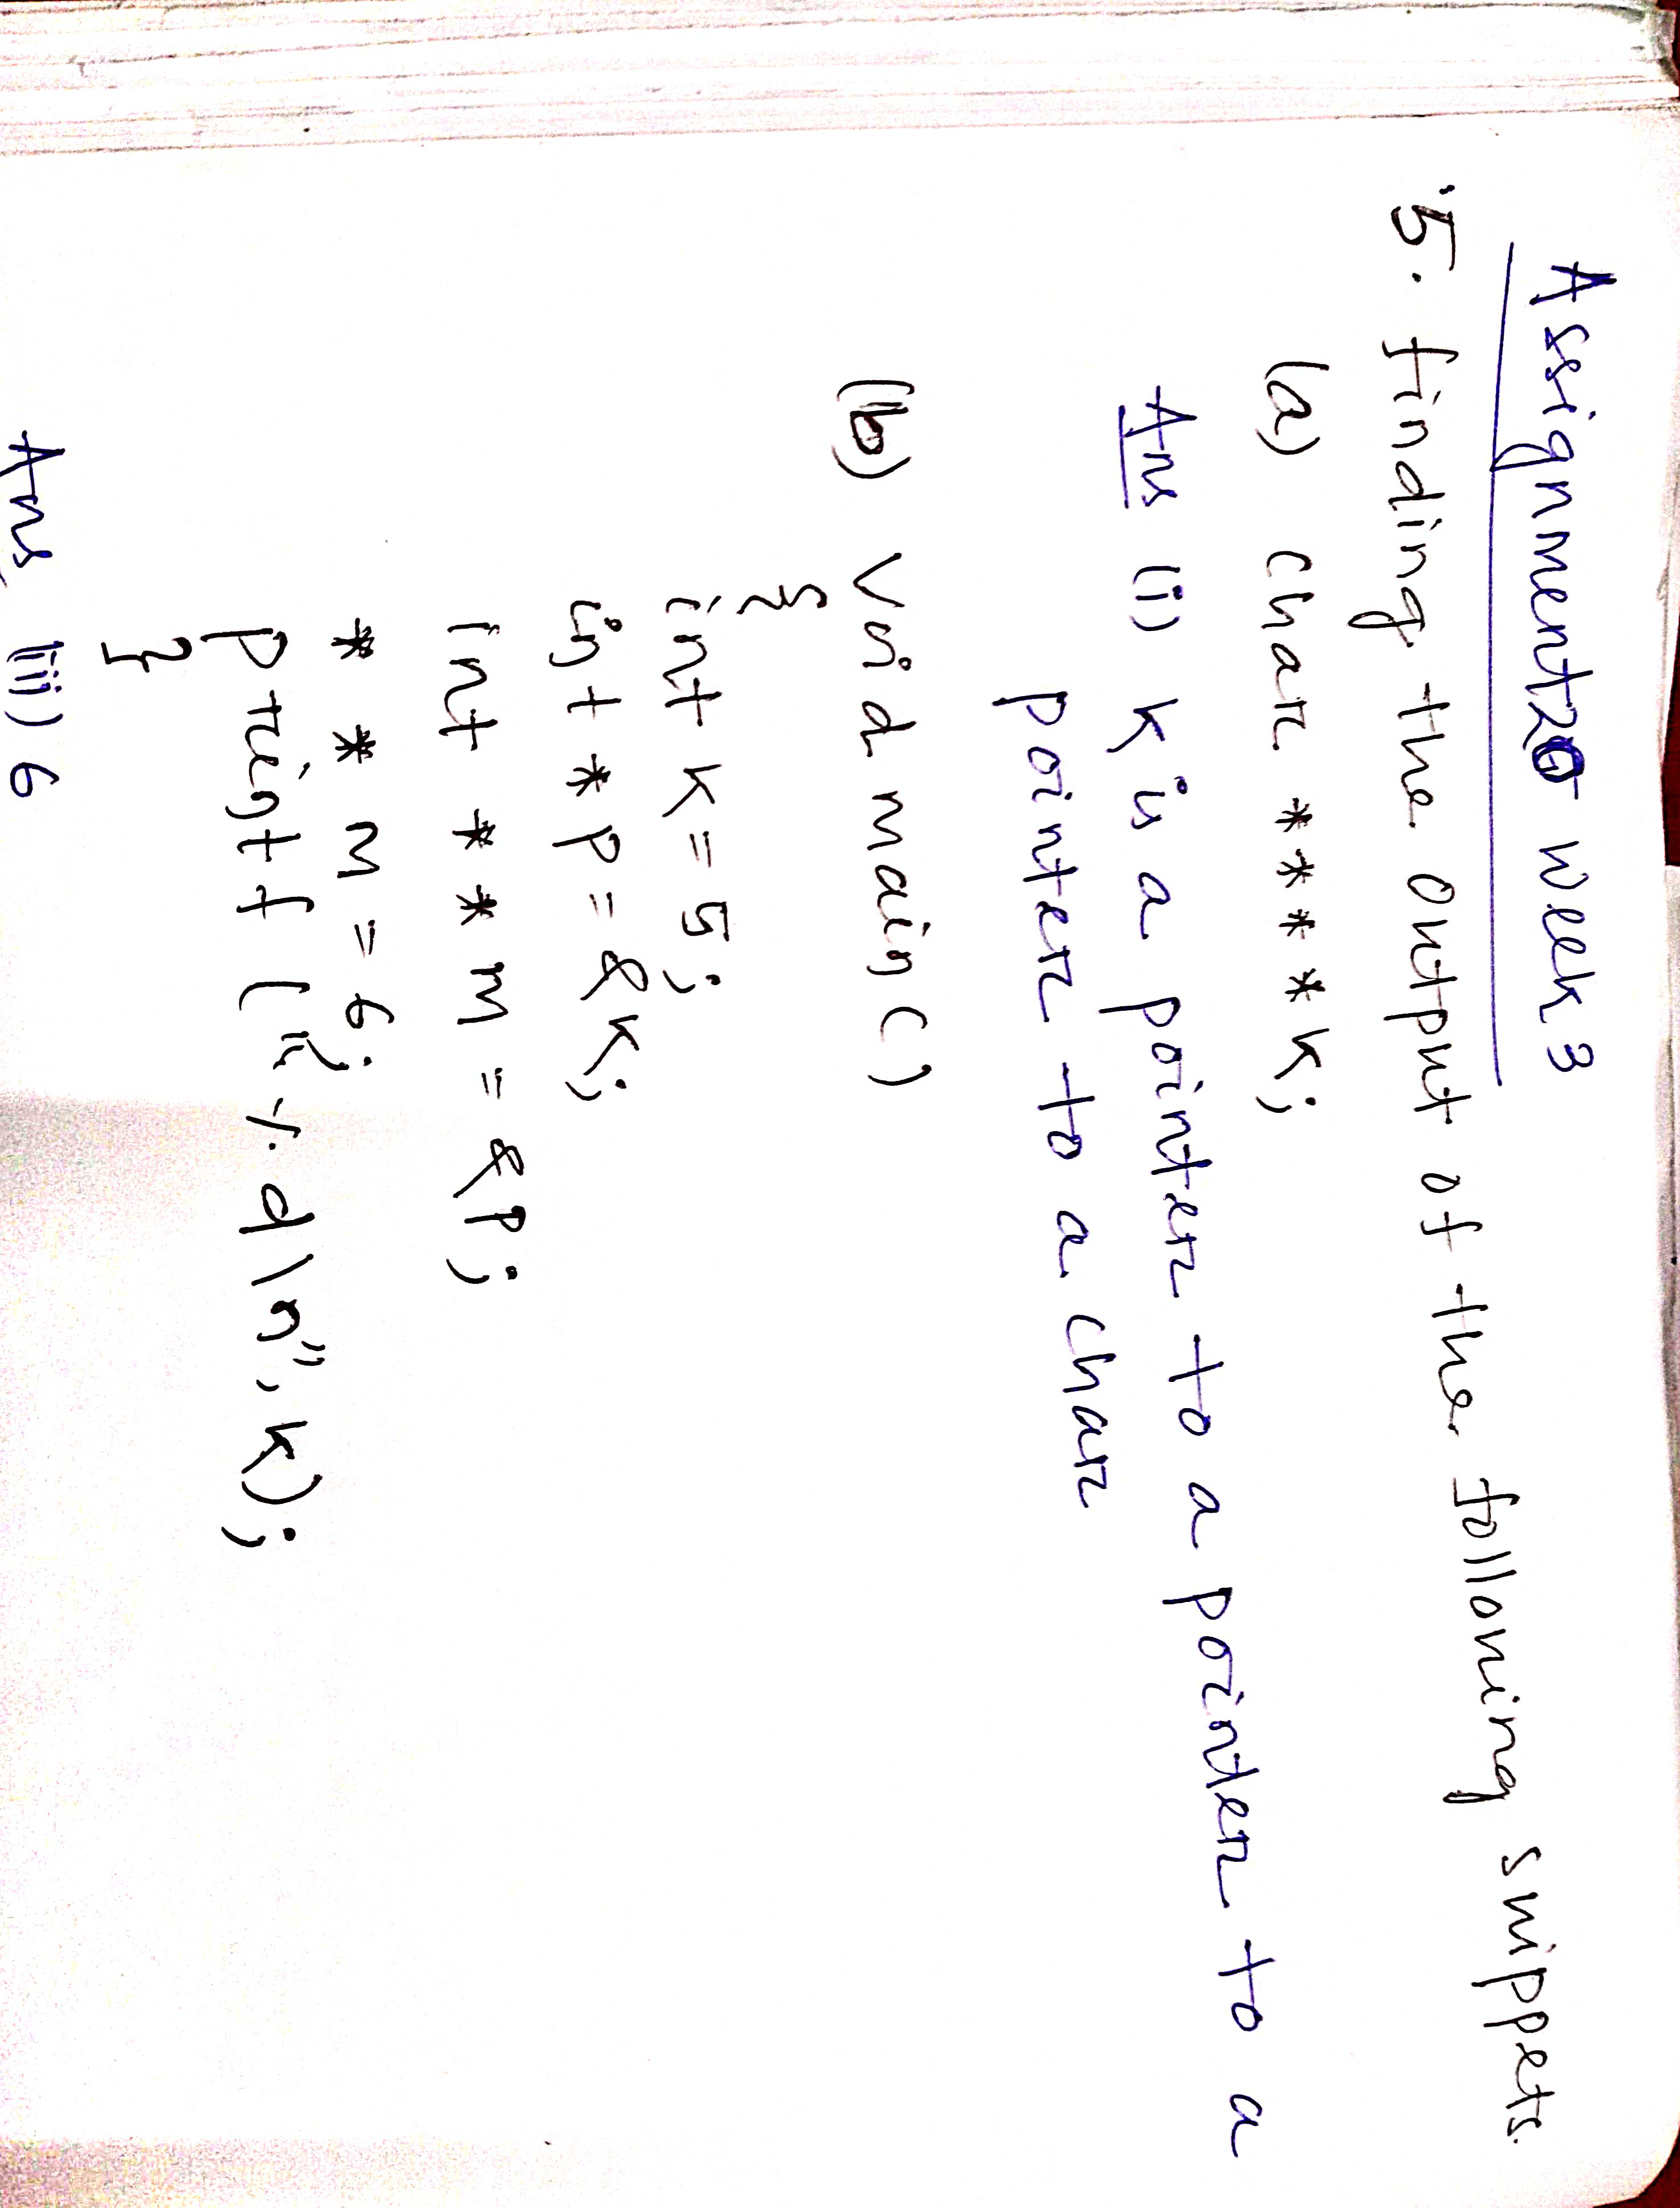 Assignment20 week 3
5. finding the output of the following snippets.
(a) char ****k;
Ans (i) k is a pointer to a pointer to a
pointer to a char
(b) Void main()
{
int k = 5;
int *p = &k;
int **m = &p;
**m = 6;
printf ("%d\n", k);
}
Ans (iii) 6